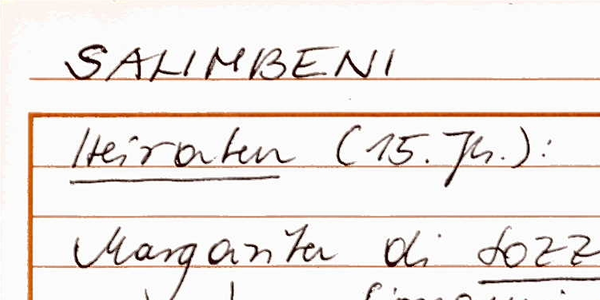 SALIMBENI
Heiraten (15. Jh.):
Margarita di Sozz